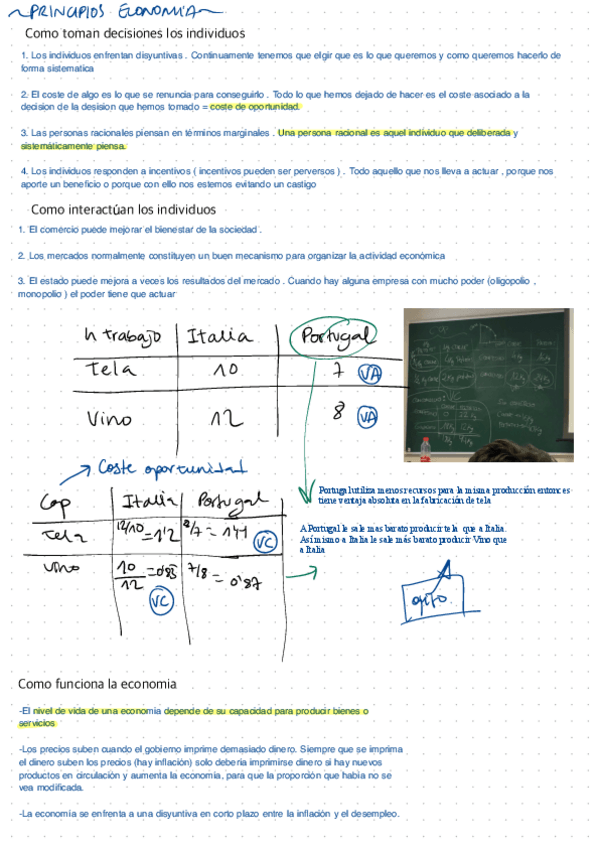 PRINCIPIOS ECONOMIA
Como toman decisiones los individuos
1. Los individuos enfrentan disyuntivas . Continuamente tenemos que elgir que es lo que queremos y como queremos hacerlo de
forma sistematica
2. El coste de algo es lo que se renuncia para conseguirlo . Todo lo que hemos dejado de hacer es el coste asociado a la
decision de la desision que hemos tomado = coste de oportunidad.
3. Las personas racionales piensan en términos marginales . Una persona racional es aquel individuo que deliberada y
sistemáticamente piensa.
4. Los individuos responden a incentivos ( incentivos pueden ser perversos ) . Todo aquello que nos lleva a actuar , porque nos
aporte un beneficio o porque con ello nos estemos evitando un castigo
Como interactúan los individuos
1. El comercio puede mejorar el bienestar de la sociedad .
2. Los mercados normalmente constituyen un buen mecanismo para organizar la actividad económica
3. El estado puede mejora a veces los resultados del mercado . Cuando hay alguna empresa con mucho poder (oligopolio ,
monopolio ) el poder tiene que actuar
h trabajo Italia Portugal
Tela 10 7 VA
Vino 12 8 VA
Coste oportunidad
Cop Italia Portugal
Tela 12/10 = 1'2 8/7 = 1'14 VC
Vino 10/12 = 0'83 VC 7/8 = 0'87
Portugal utiliza menos recursos para la misma producción entonces
tiene ventaja absoluta en la fabricación de tela
A Portugal le sale mas barato producir tela que a Italia.
Así mismo a Italia le sale más barato producir Vino que
a Italia
Como funciona la economia
-El nivel de vida de una economia depende de su capacidad para producir bienes o
servicios
-Los precios suben cuando el gobierno imprime demasiado dinero. Siempre que se imprima
el dinero suben los precios (hay inflación) solo deberia imprimirse dinero si hay nuevos
productos en circulación y aumenta la economia, para que la proporción que habia no se
vea modificada.
-La economia se enfrenta a una disyuntiva en corto plazo entre la inflación y el desempleo.